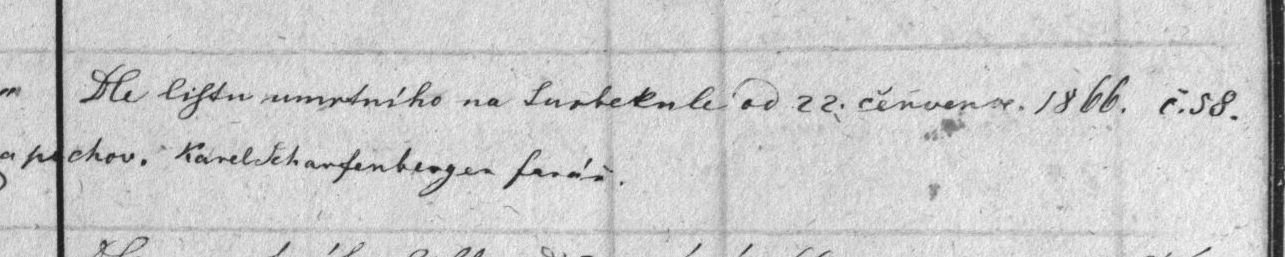 Dle listu umrtního na Turbekule od 22. července. 1866. č. 58.
a pochov. Karel Scharfenberger farář.